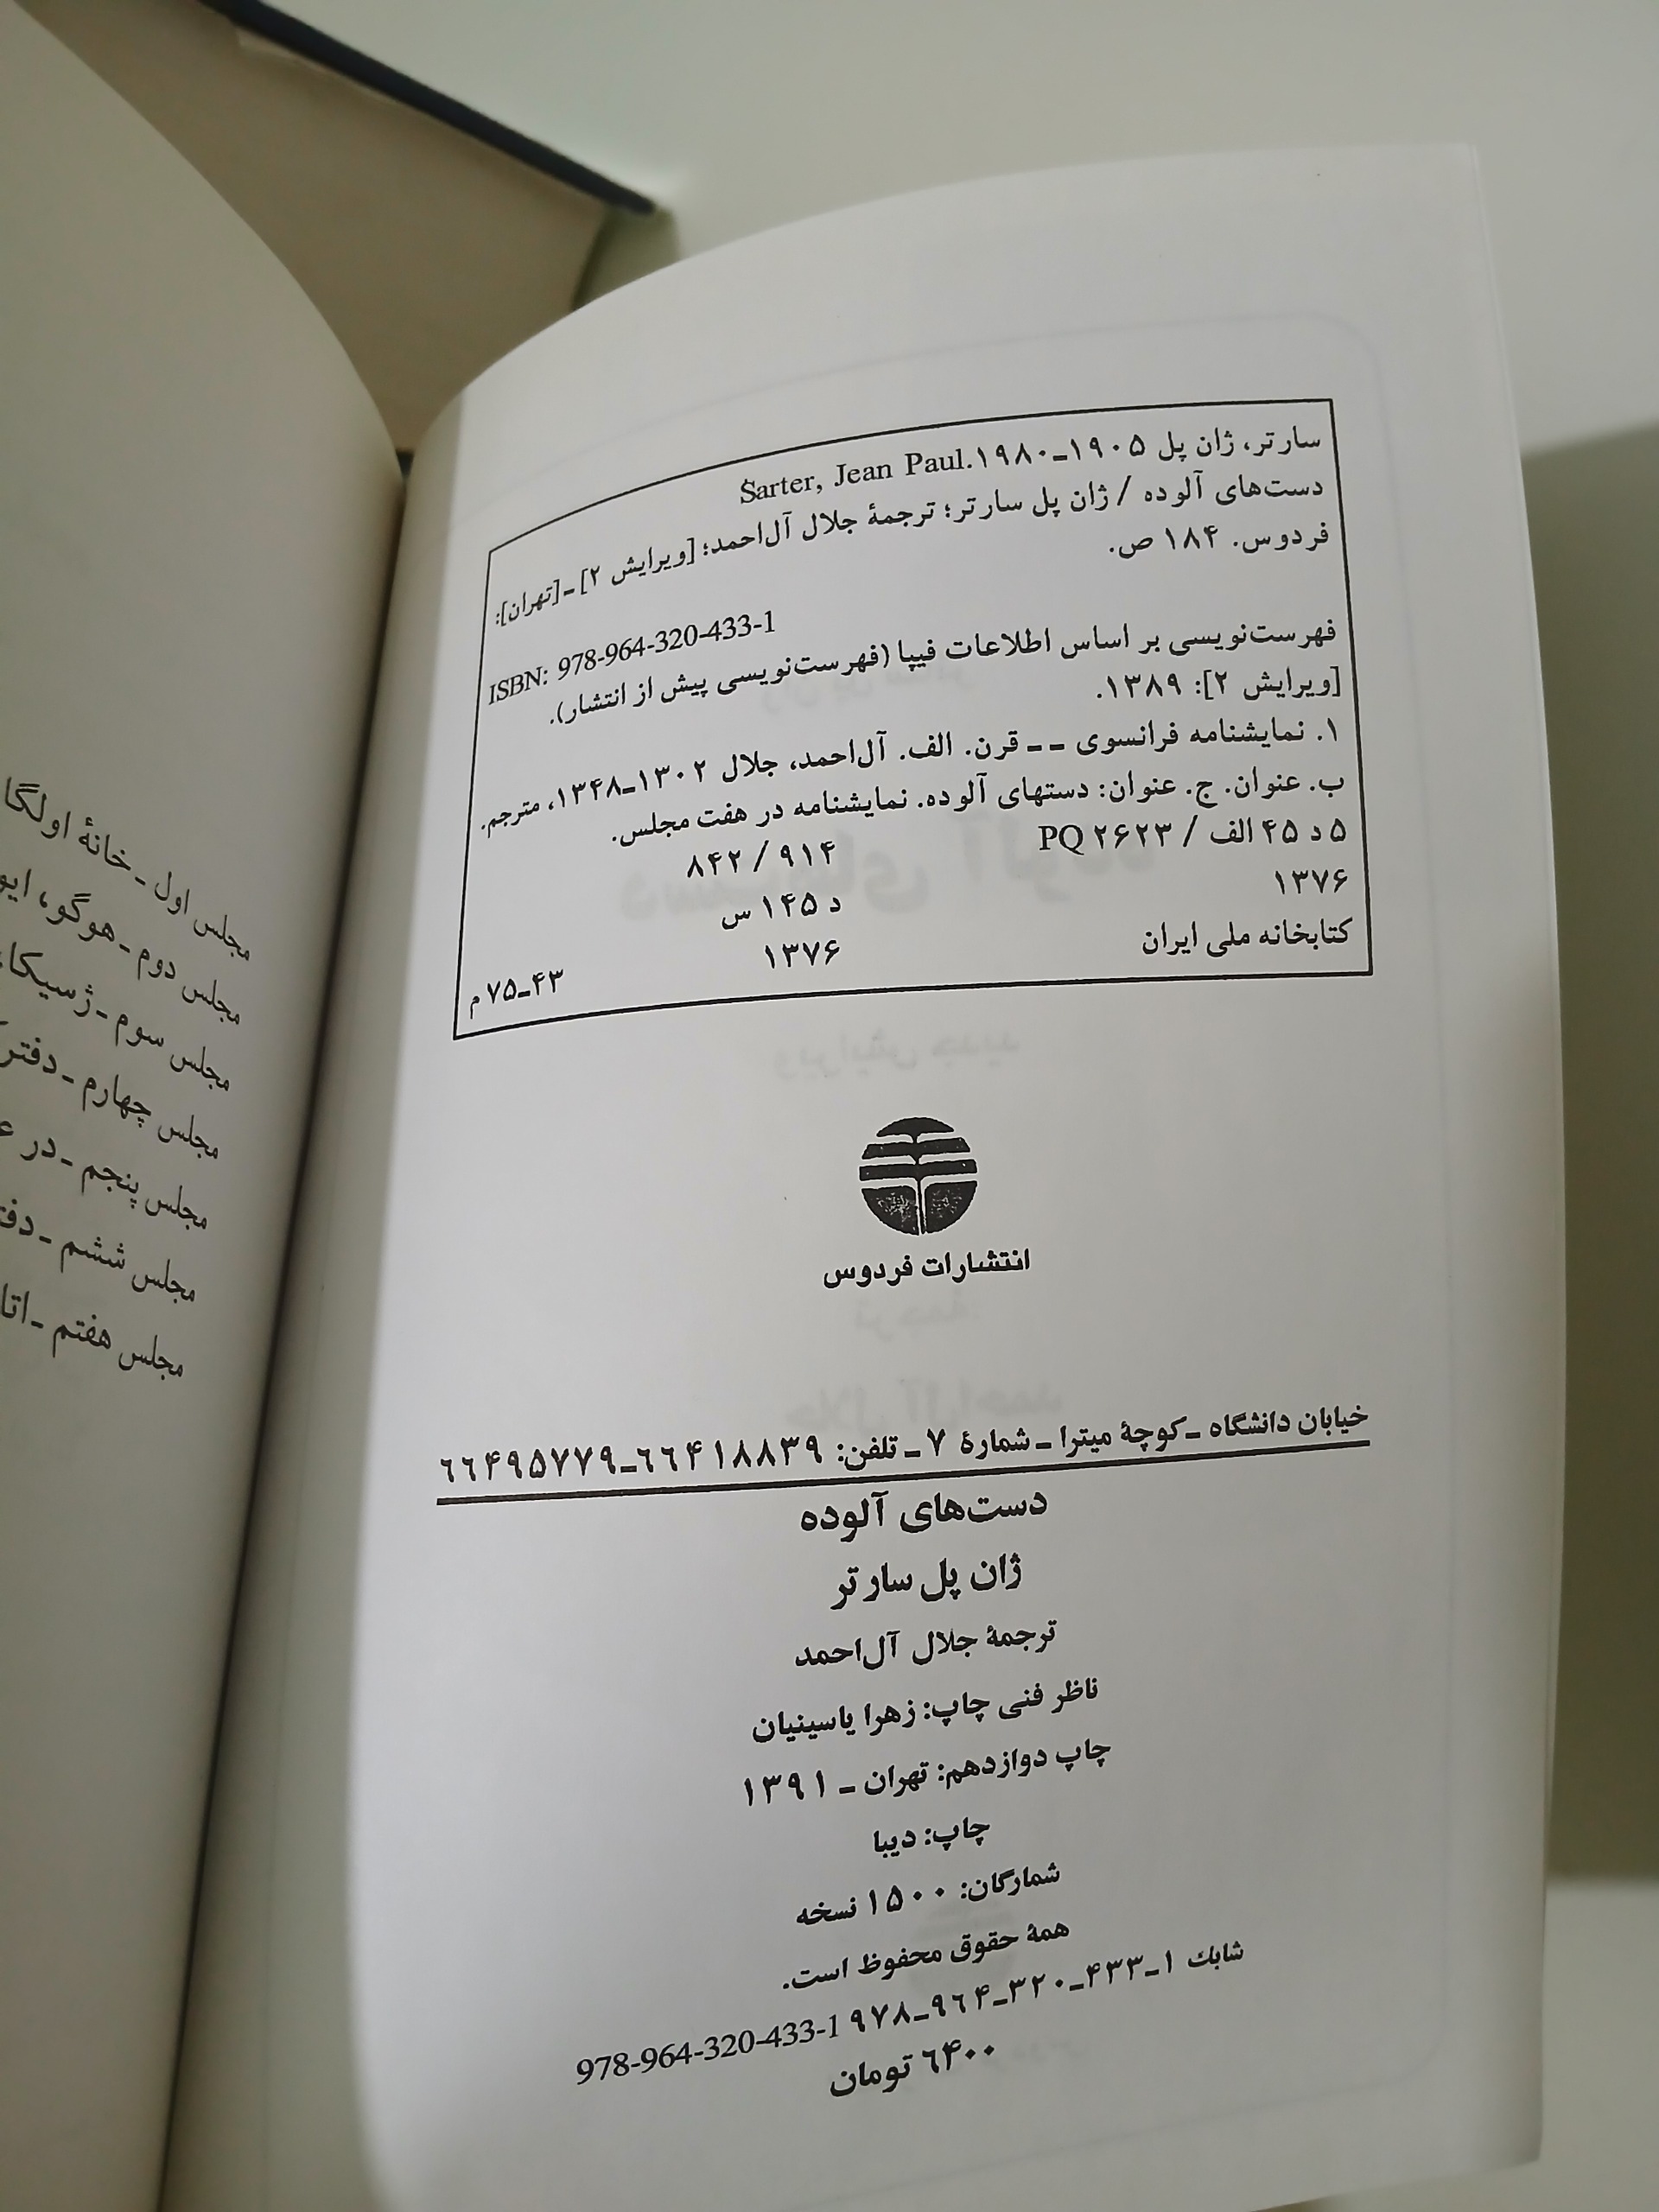 سارتر، ژان پل ۱۹۰۵ـ۱۹۸۰.Sarter, Jean Paul
دست‌های آلوده / ژان پل سارتر؛ ترجمهٔ جلال آل‌احمد؛ [ویرایش ۲] ـ [تهران]:
فردوس. ۱۸۴ ص.
ISBN: 978-964-320-433-1
فهرست‌نویسی بر اساس اطلاعات فیپا (فهرست‌نویسی پیش از انتشار).
[ویرایش ۲]: ۱۳۸۹.
۱. نمایشنامه فرانسوی ــ قرن. الف. آل‌احمد، جلال ۱۳۰۲ـ۱۳۴۸، مترجم.
ب. عنوان. ج. عنوان: دستهای آلوده. نمایشنامه در هفت مجلس.
۵ د ۴۵ الف / PQ ۲۶۲۳ ۸۴۲ / ۹۱۴
۱۳۷۶ د ۱۴۵ س
کتابخانه ملی ایران ۱۳۷۶ ۴۳ـ۷۵ م
انتشارات فردوس
خیابان دانشگاه ـ کوچهٔ میترا ـ شمارهٔ ۷ ـ تلفن: ۶۶۴۱۸۸۳۹ـ۶۶۴۹۵۷۷۹
دست‌های آلوده
ژان پل سارتر
ترجمهٔ جلال آل‌احمد
ناظر فنی چاپ: زهرا یاسینیان
چاپ دوازدهم: تهران ـ ۱۳۹۱
چاپ: دیبا
شمارگان: ۱۵۰۰ نسخه
همهٔ حقوق محفوظ است.
شابك ۱ـ۴۳۳ـ۳۲۰ـ۹۶۴ـ۹۷۸ 978-964-320-433-1
۶۴۰۰ تومان
مجلس اول ـ خانهٔ اولگا
مجلس دوم ـ هوگو،
مجلس سوم ـ ژسیکا،
مجلس چهارم ـ
مجلس پنجم ـ در
مجلس ششم ـ
مجلس هفتم ـ